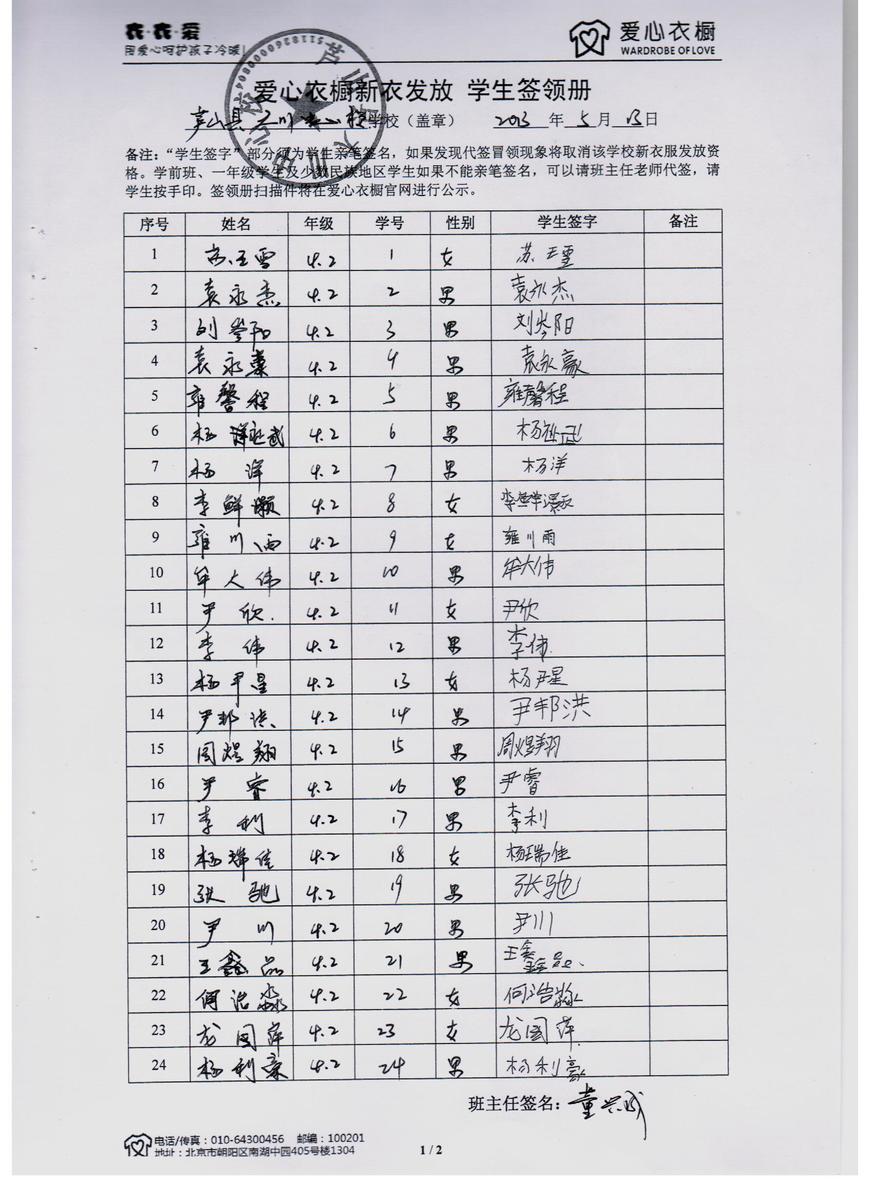 衣·衣·爱
用爱心呵护孩子冷暖!
爱心衣橱
WARDROBE OF LOVE
爱心衣橱新衣发放 学生签领册
芦山县 学校（盖章） 2013 年 5 月 13 日
备注：“学生签字”部分须为学生亲笔签名，如果发现代签冒领现象将取消该学校新衣服发放资
格。学前班、一年级学生及少数民族地区学生如果不能亲笔签名，可以请班主任老师代签，请
学生按手印。签领册扫描件将在爱心衣橱官网进行公示。
序号 姓名 年级 学号 性别 学生签字 备注
1 4.2 1 女
2 袁永杰 4.2 2 男 袁永杰
3 刘岑阳 4.2 3 男 刘岑阳
4 袁永豪 4.2 4 男 袁永豪
5 雍馨程 4.2 5 男 雍馨程
6 4.2 6 男
7 杨洋 4.2 7 男 杨洋
8 李鲜灏 4.2 8 女 李鲜灏
9 雍川雨 4.2 9 女 雍川雨
10 牟大伟 4.2 10 男 牟大伟
11 尹欣 4.2 11 女 尹欣
12 李伟 4.2 12 男 李伟
13 杨尹星 4.2 13 女 杨尹星
14 尹邦洪 4.2 14 男 尹邦洪
15 周煜翔 4.2 15 男 周煜翔
16 尹睿 4.2 16 男 尹睿
17 李利 4.2 17 男 李利
18 杨瑞佳 4.2 18 女 杨瑞佳
19 张驰 4.2 19 男 张驰
20 尹川 4.2 20 男 尹川
21 王鑫品 4.2 21 男 王鑫品
22 何浩淼 4.2 22 女 何浩淼
23 龙国萍 4.2 23 女 龙国萍
24 杨利豪 4.2 24 男 杨利豪
班主任签名：
电话/传真：010-64300456 邮编：100201
地址：北京市朝阳区南湖中园405号楼1304
1 / 2